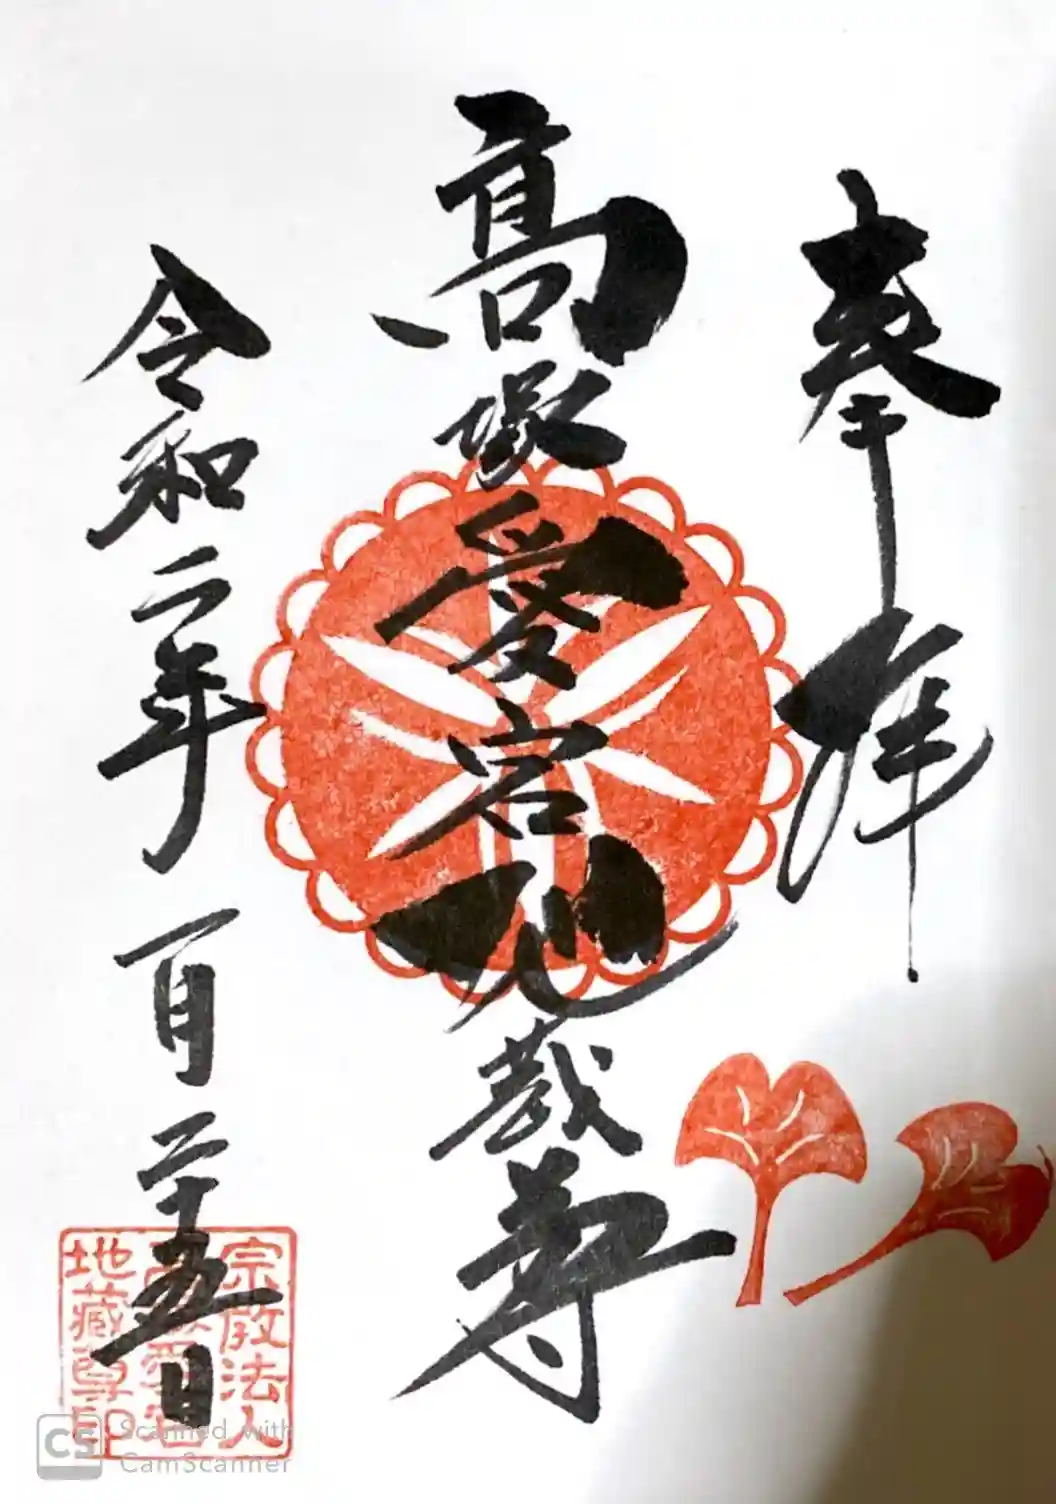 奉拝
高塚愛宕地蔵尊
令和二年 一月二十五日
宗教法人
高塚愛宕
地蔵尊印
CS Scanned with
CamScanner